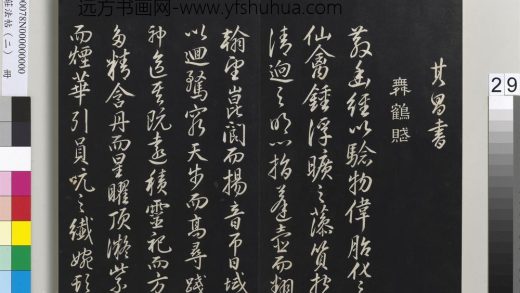 远方书画网-www.yfshuhua.com
其昌書
舞鶴賦
散幽經以驗物偉胎化之
仙禽鍾浮曠之藻質抱
清迥之明心指蓬壺而翻
翰望崑閬而揚音帀日域
以迴騖窮天步而高尋踐
神區其既遠積靈祀而方
多精含丹而星曜頂凝紫
而煙華引員吭之纖婉頓
0078N000000000
法帖(二) 册
29